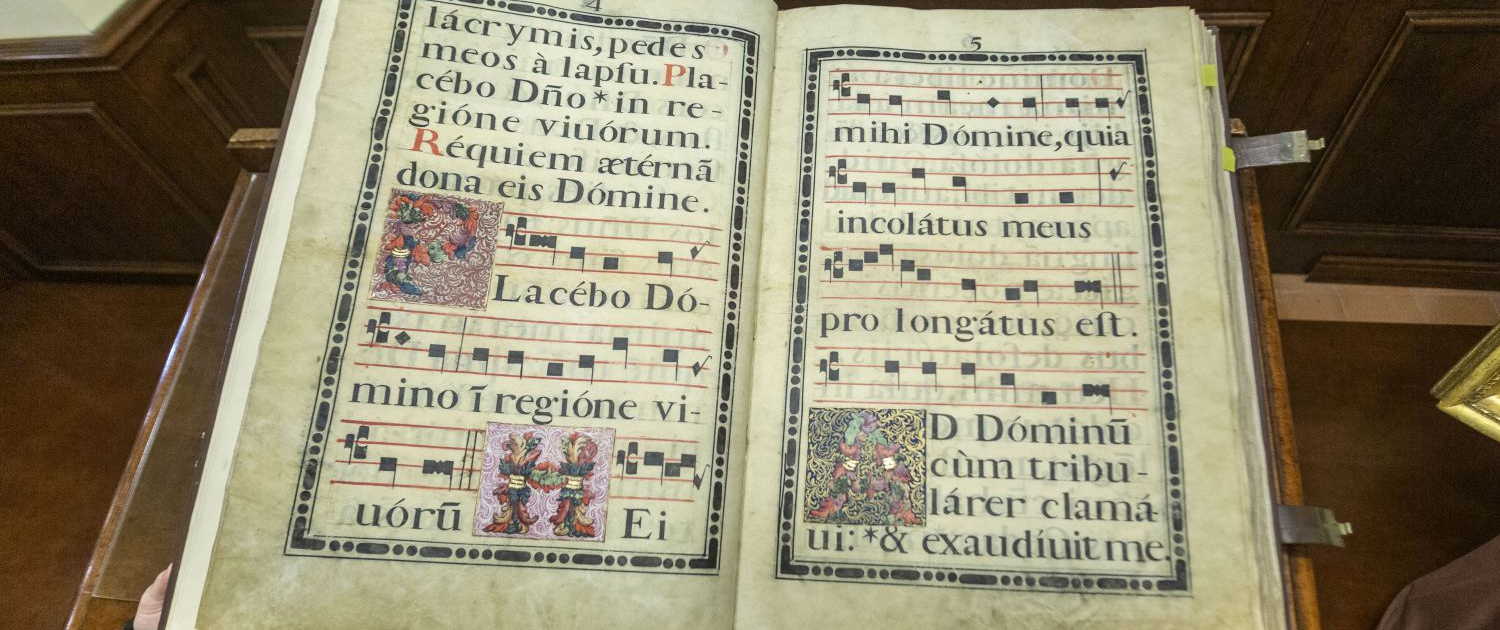 4
lácrymis, pedes
meos à lapſu. Pla-
cébo Dño * in re-
gióne viuórum.
Réquiem ætérnã
dona eis Dómine.
PLacébo Dó-
mino ī regióne vi-
uórū HEi
5
mihi Dómine, quia
incolátus meus
prolongátus eſt.
AD Dóminū
cùm tribu-
lárer clamá-
ui: * & exaudíuit me.